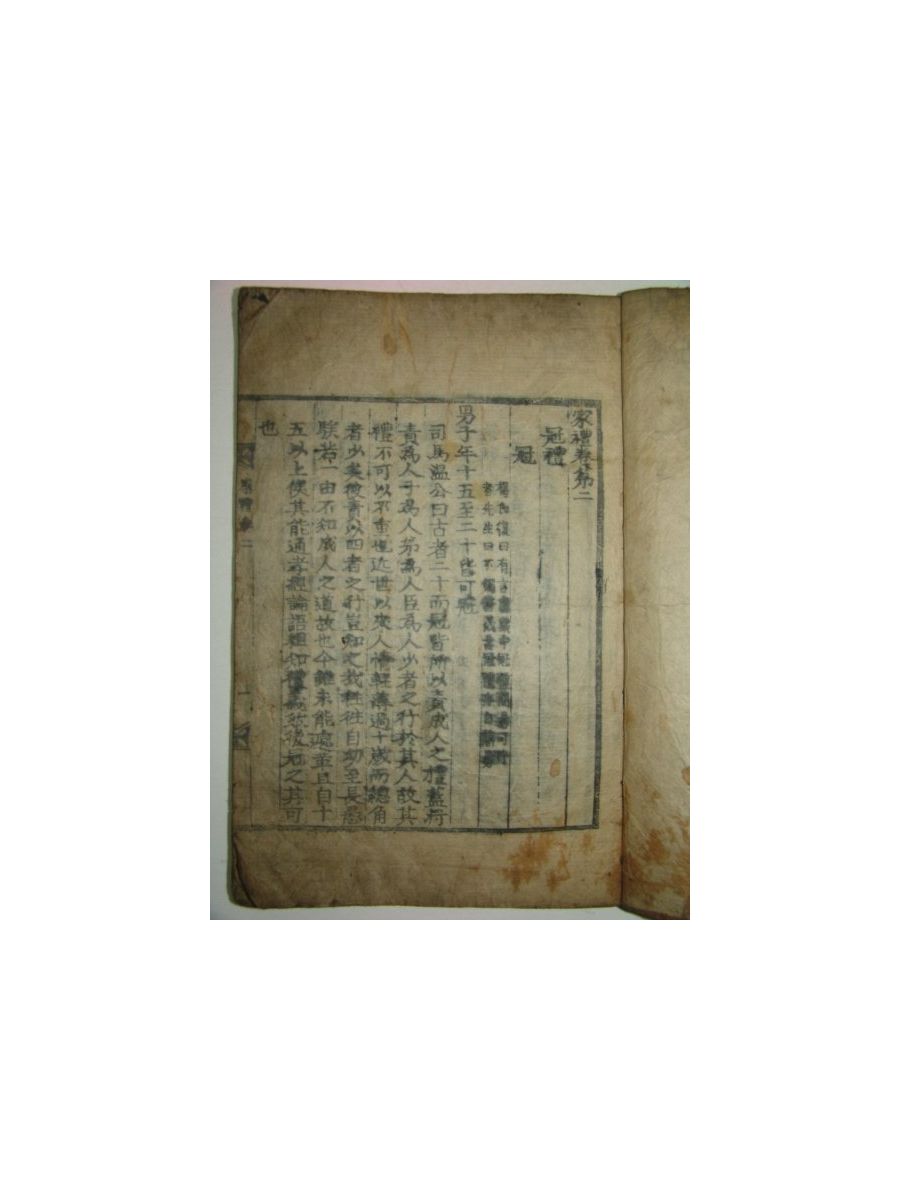 家禮卷第二
冠禮
冠
楊氏復曰有言書儀中冠
者先生曰不獨書儀古冠禮
男子年十五至二十皆可冠
司馬溫公曰古者二十而冠皆所以責成人之禮蓋將
責爲人子爲人弟爲人臣爲人少者之行於其人故其
禮不可以不重也近世以來人情輕薄過十歲而總角
者少矣彼責以四者之行豈知之哉往往自幼至長愚
騃若一由不知成人之道故也今雖未能遽革且自十
五以上俟其能通孝經論語粗知禮義然後冠之其可
也